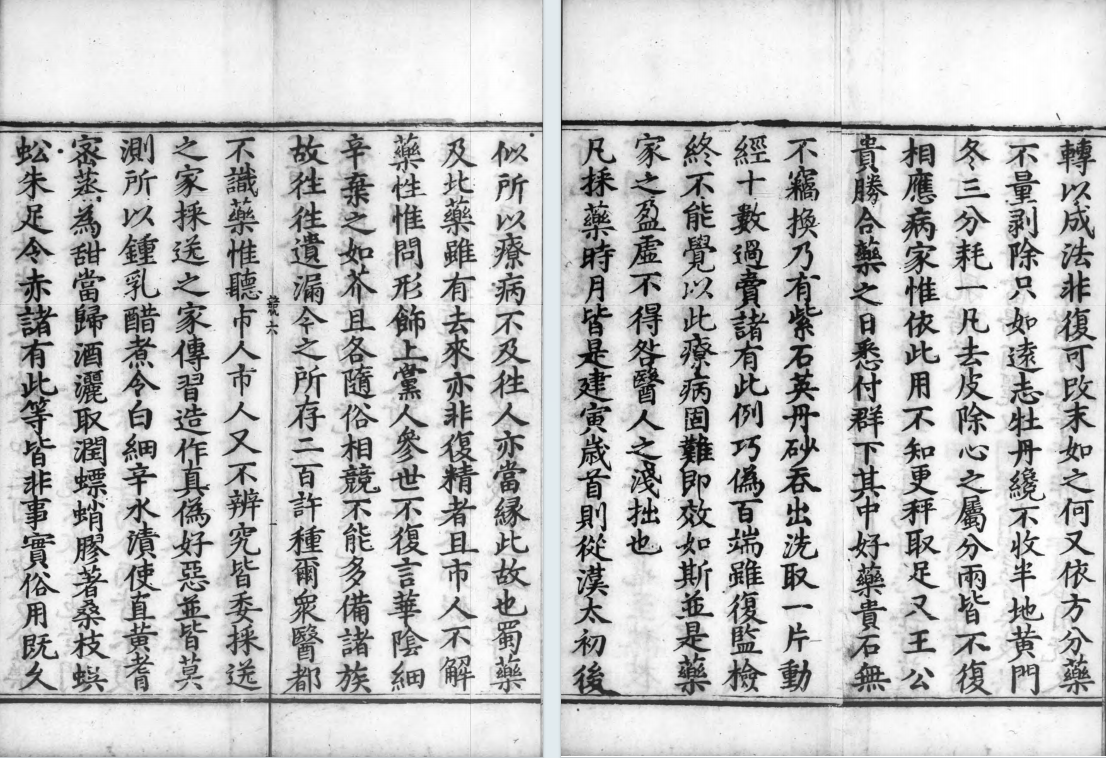 似所以療病不及往人亦當緣此故也蜀藥
及此藥雖有去來亦非復精者且市人不解
藥性惟問形飾上黨人參世不復言華陰細
辛棄之如芥且各隨俗相競不能多備諸族
故往往遺漏今之所存二百許種爾衆醫都
不識藥惟聽市人市人又不辨究皆委採送
六
之家採送之家傳習造作真偽好惡並皆莫
測所以鍾乳醋煮令白細辛水漬使直黃耆
宻蒸為甜當歸酒灑取潤螵蛸膠著桑枝蜈
蚣朱足令赤諸有此等皆非事實俗用既久
轉以成法非復可改末如之何又依方分藥
不量剥除只如遠志牡丹纔不收半地黃門
冬三分耗一凡去皮除心之屬分兩皆不復
相應病家惟依此用不知更秤取足又王公
貴勝合藥之日悉付群下其中好藥貴石無
不竊換乃有紫石英丹砂吞出洗取一片動
經十數過賣諸有此例巧偽百端雖復監檢
終不能覺以此療病固難即效如斯並是藥
家之盈虛不得咎醫人之淺拙也
凡採藥時月皆是建寅歲首則從漢太初後